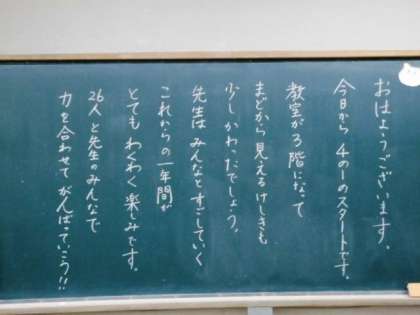 おはようございます。
今日から 4の1のスタートです。
教室が3階になって
まどから見えるけしきも
少しかわったでしょう。
先生は みんなとすごしていく
これからの一年間が
とても わくわく 楽しみです。
26人と先生のみんなで
力を合わせて がんばっていこう!!